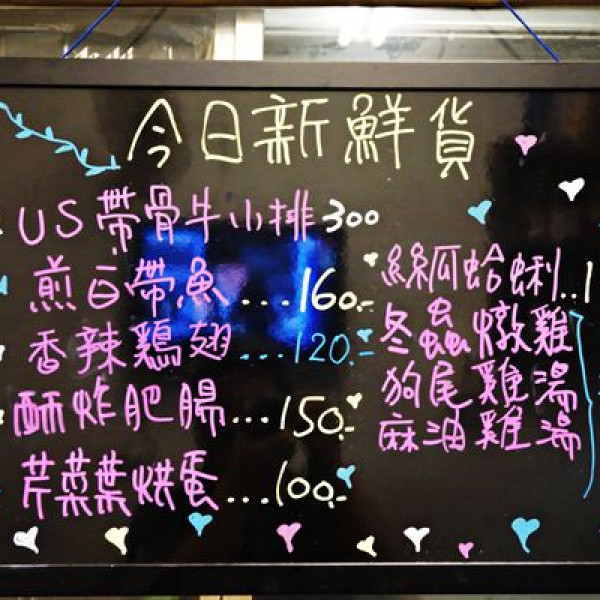 今日新鮮貨
US帶骨牛小排300
煎白帶魚...160.-
香辣鷄翅...120.-
酥炸肥腸...150.-
芹菜葉烘蛋...100.-
絲瓜蛤蜊..1
冬蟲燉雞
狗尾雞湯
麻油雞湯